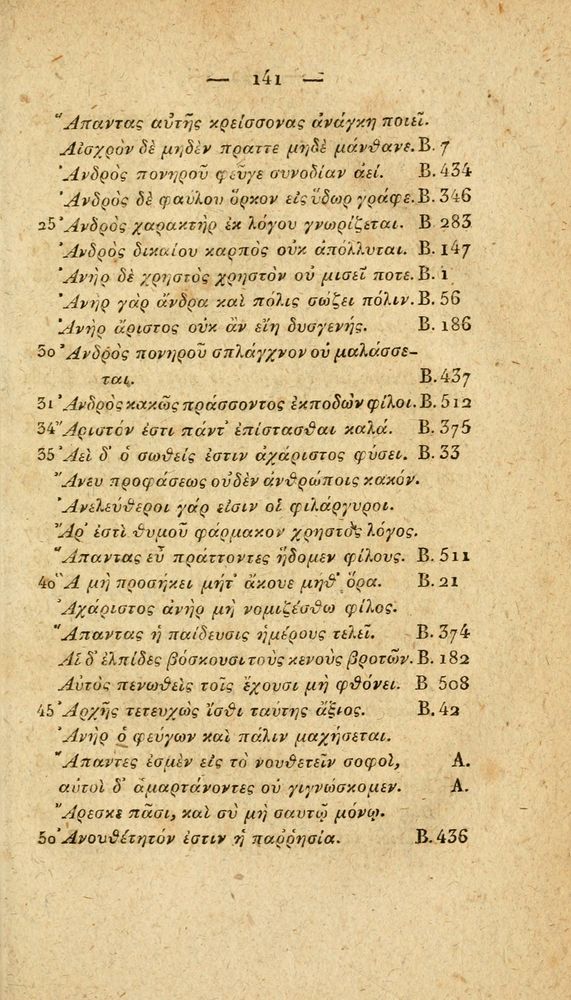 — 141 —
Ἅπαντας αὑτῆς κρείσσονας ἀνάγκη ποιεῖ.
Αἰσχρὸν δὲ μηδὲν πραττε μηδὲ μάνθανε. B. 7
Ἀνδρὸς πονηροῦ φεῦγε συνοδίαν ἀεί. B. 434
Ἀνδρὸς δὲ φαύλου ὅρκον εἰς ὕδωρ γράφε. B. 346
25 Ἀνδρὸς χαρακτὴρ ἐκ λόγου γνωρίζεται. B 283
Ἀνδρὸς δικαίου καρπὸς οὐκ ἀπόλλυται. B. 147
Ἀνὴρ δὲ χρηστὸς χρηστὸν οὐ μισεῖ ποτε. B. 1
Ἀνὴρ γὰρ ἄνδρα καὶ πόλις σώζει πόλιν. B. 56
Ἀνὴρ ἄριστος οὐκ ἂν εἴη δυσγενής. B. 186
30 Ἀνδρὸς πονηροῦ σπλάγχνον οὐ μαλάσσε-
ται. B. 437
31 Ἀνδρὸς κακῶς πράσσοντος ἐκποδὼν φίλοι. B. 512
34 Ἄριστόν ἐστι πάντ' ἐπίστασθαι καλά. B. 375
35 Ἀεὶ δ' ὁ σωθείς ἐστιν ἀχάριστος φύσει. B. 33
Ἄνευ προφάσεως οὐδὲν ἀνθρώποις κακόν.
Ἀνελεύθεροι γάρ εἰσιν οἱ φιλάργυροι.
Ἆρ' ἐστὶ θυμοῦ φάρμακον χρηστὸς λόγος.
Ἅπαντας εὖ πράττοντες ἥδομεν φίλους. B. 511
40 Ἃ μὴ προσήκει μήτ' ἄκουε μηθ' ὅρα. B. 21
Ἀχάριστος ἀνὴρ μὴ νομιζέσθω φίλος.
Ἅπαντας ἡ παίδευσις ἡμέρους τελεῖ. B. 374
Αἱ δ' ἐλπίδες βόσκουσι τοὺς κενοὺς βροτῶν. B. 182
Αὐτὸς πενωθεὶς τοῖς ἔχουσι μὴ φθόνει. B 508
45 Ἀρχῆς τετευχὼς ἴσθι ταύτης ἄξιος. B. 42
Ἀνὴρ ὁ φεύγων καὶ πάλιν μαχήσεται.
Ἅπαντες ἐσμὲν εἰς τὸ νουθετεῖν σοφοὶ, A.
αὐτοὶ δ' ἁμαρτάνοντες οὐ γιγνώσκομεν. A.
Ἄρεσκε πᾶσι, καὶ σὺ μὴ σαυτῷ μόνῳ.
50 Ἀνουθέτητόν ἐστιν ἡ παῤῥησία. B. 436